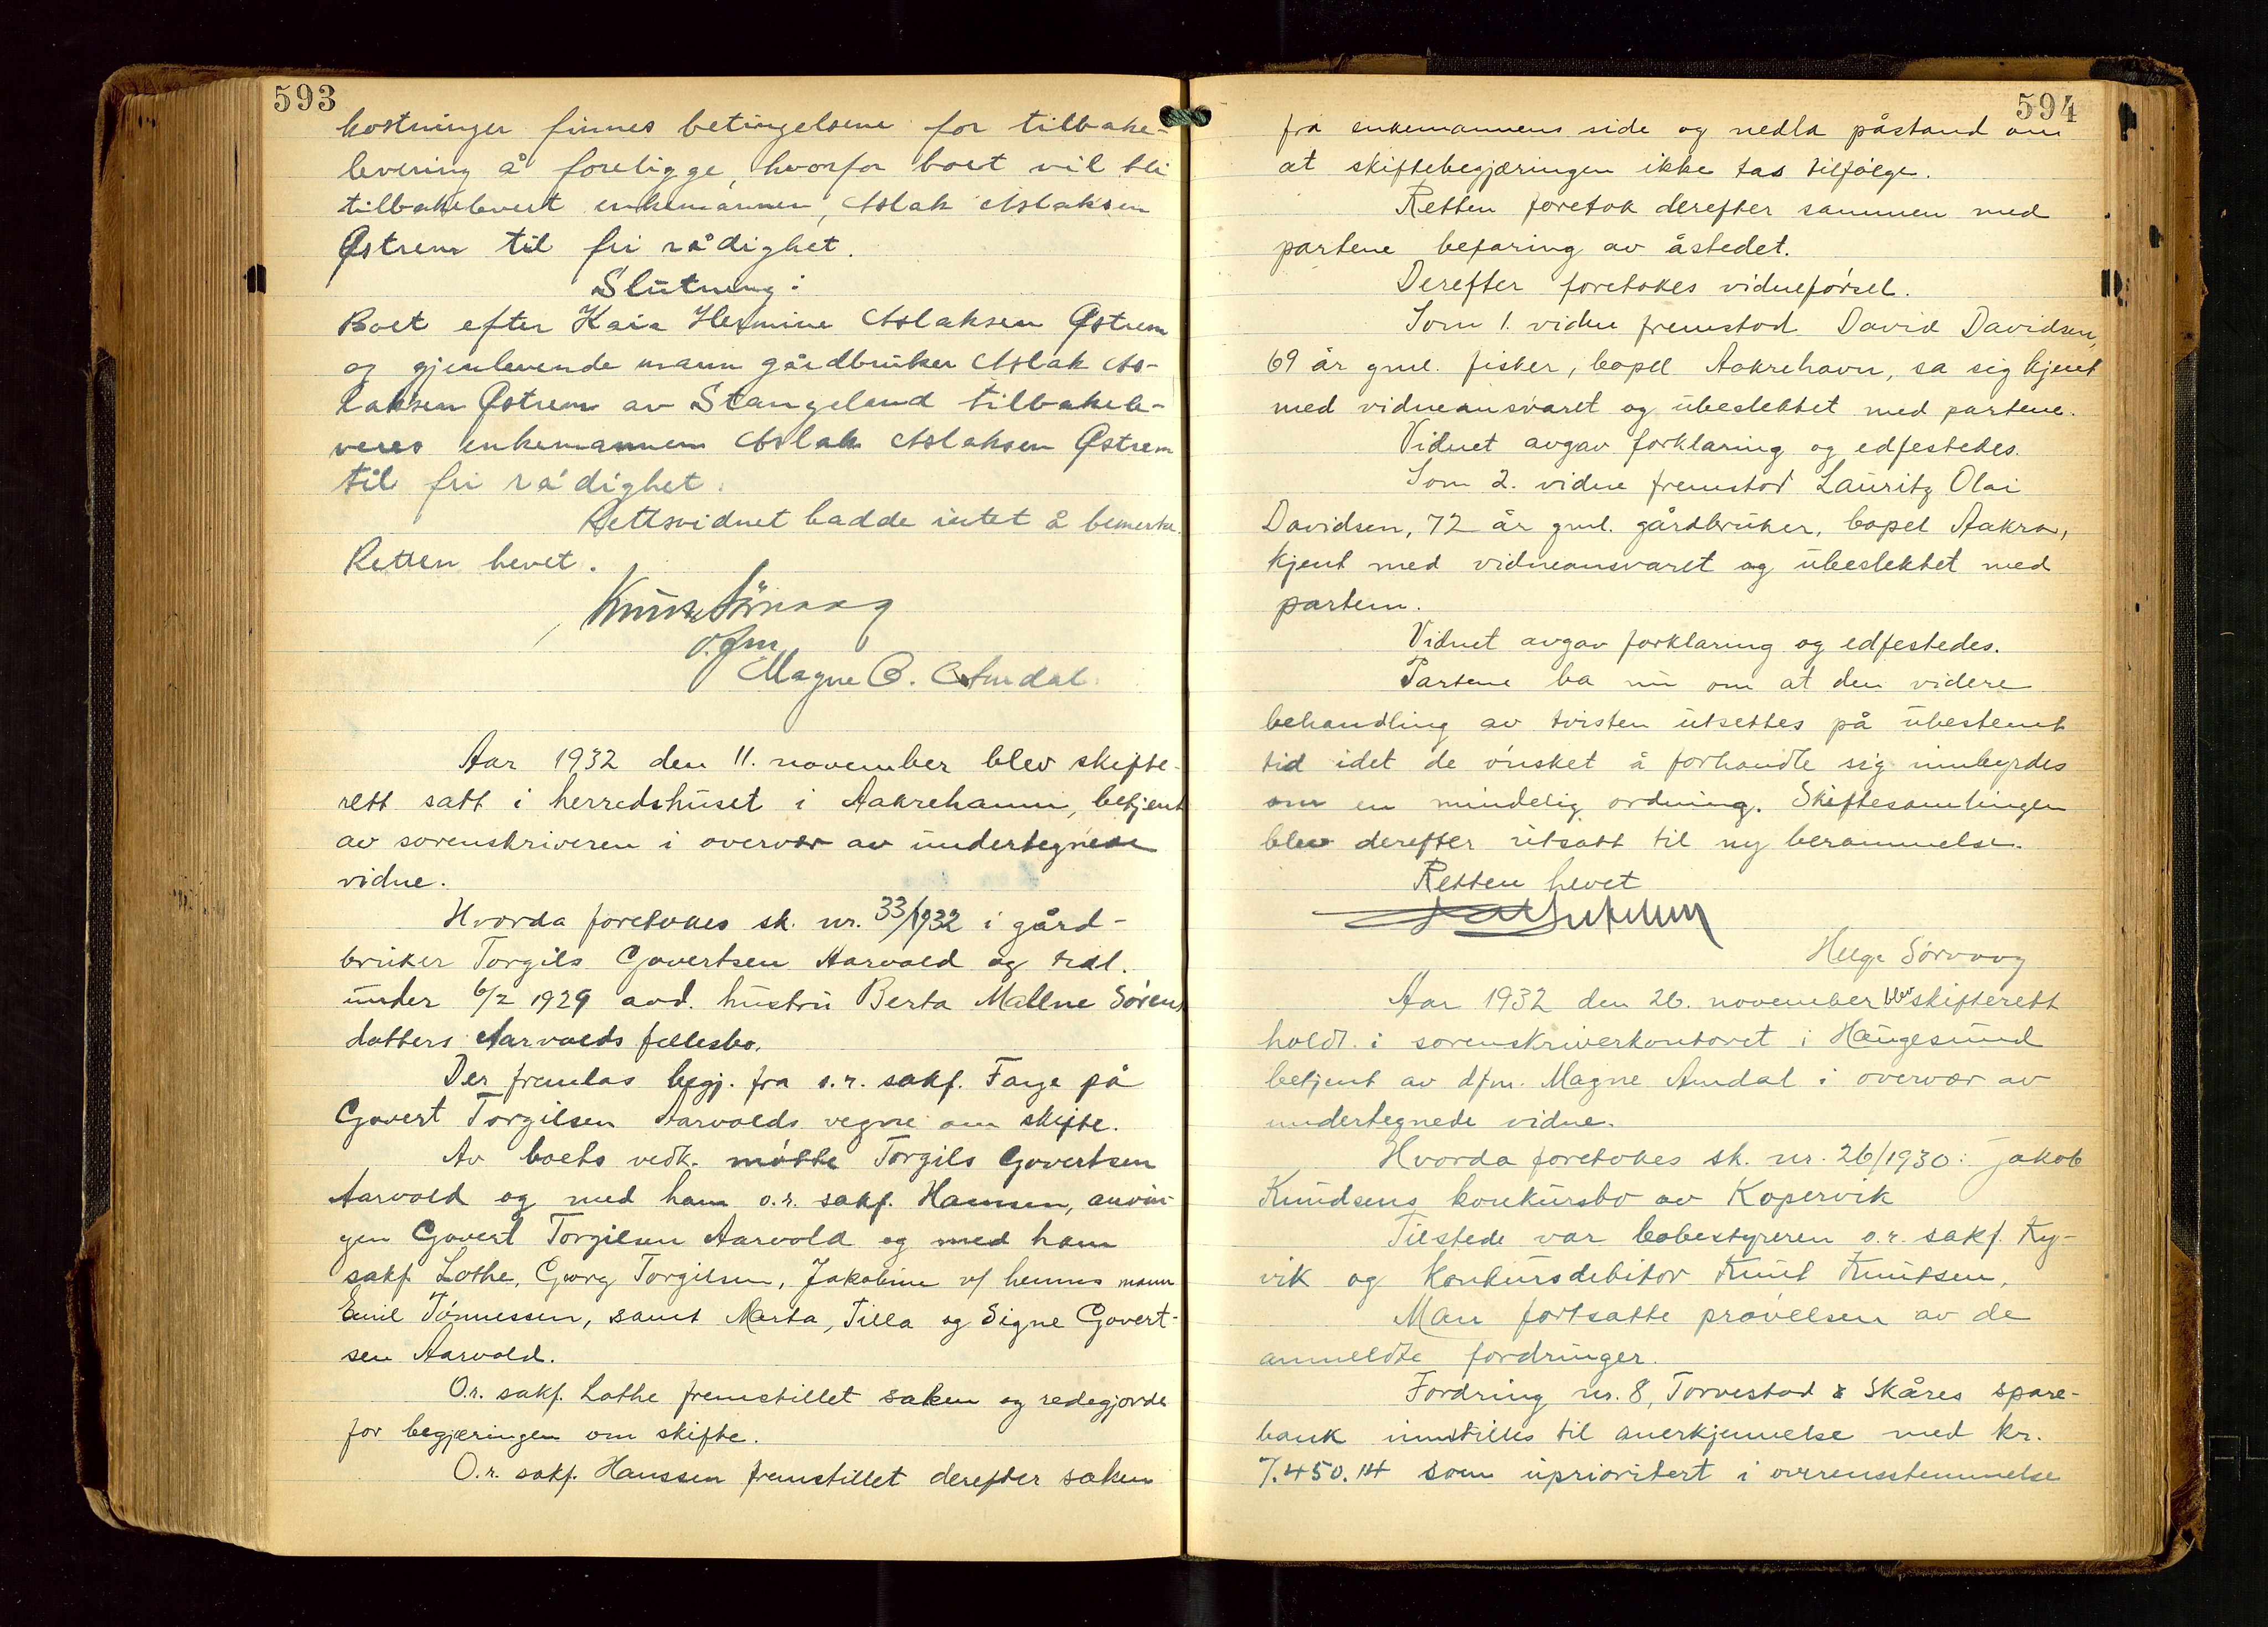 593
kostninger finnes betingelsene for tilbake-
levering å foreligge, hvorfor boet vil bli
tilbakelevert enkemannen, Aslak Aslaksen
Østrem til fri rådighet.
Slutning:
Boet efter Kaia Hermine Aslaksen Østrem
og gjenlevende mann gårdbruker Aslak As-
laksen Østrem av Stangeland tilbakele-
veres enkemannen Aslak Aslaksen Østrem
til fri rådighet.
Rettsvidnet hadde intet å bemerke.
Retten hevet.
Magne Amdal
Aar 1932 den 11. november blev skifte-
rett satt i herredshuset i Aakrehamn, betjent
av sorenskriveren i overvær av undertegnede
vidne.
Hvorda foretokes sk. nr. 33/1932 i gård-
bruker Torgils Govertsen Aarvold og tidl.
under 6/2 1929 avd. hustru Berta Mallne Sørens
datters Aarvolds fellesbo.
Der fremlas begj. fra o.r. sakf. Farge på
Govert Torgilsen Aarvolds vegne om skifte.
Av boets vedk. møtte Torgils Govertsen
Aarvold og med ham o.r. sakf. Hanssen, arvin-
gen Govert Torgilsen Aarvold og med ham
sakf. Lothe, Georg Torgilsen, Jakobine v/ hennes mann
Emil Tønnessen, samt Marta, Tilla og Signe Govert-
sen Aarvold.
O.r. sakf. Lothe fremstillet saken og redegjorde
for begjæringen om skifte.
O.r. sakf. Hanssen fremstillet derefter saken
594
fra enkemannens side og nedla påstand om
at skiftebegjæringen ikke tas tilfølge.
Retten foretok derefter sammen med
partene befaring av åstedet.
Derefter foretokes vidneførsel.
Som 1. vidne fremstod David Davidsen,
69 år gml. fisker, bopel Aakrehavn, sa sig kjent
med vidneansvaret og ubeslektet med partene.
Vidnet avgav forklaring og edfestedes.
Som 2. vidne fremstod Lauritz Olai
Davidsen, 72 år gml. gårdbruker, bopel Aakra,
kjent med vidneansvaret og ubeslektet med
partene.
Vidnet avgav forklaring og edfestedes.
Partene ba nu om at den videre
behandling av tvisten utsettes på ubestemt
tid idet de ønsket å forhandle sig innbyrdes
om en mindelig ordning. Skiftesamlingen
blev derefter utsatt til ny berammelse.
Retten hevet
Helge Sørvaag
Aar 1932 den 26. november blev skifterett
holdt i sorenskriverkontoret i Haugesund
betjent av dfm. Magne Amdal i overvær av
undertegnede vidne.
Hvorda foretokes sk. nr. 26/1930: Jakob
Knudsens konkursbo av Kopervik
Tilstede var bobestyreren o.r. sakf. Ry-
vik og konkursdebitor Knut Knutsen.
Man fortsatte prøvelsen av de
anmeldte fordringer.
Fordring nr. 8, Torvestad & Skåres spare-
bank innstilles til anerkjennelse med kr.
7.450.14 som uprioritert i overensstemmelse